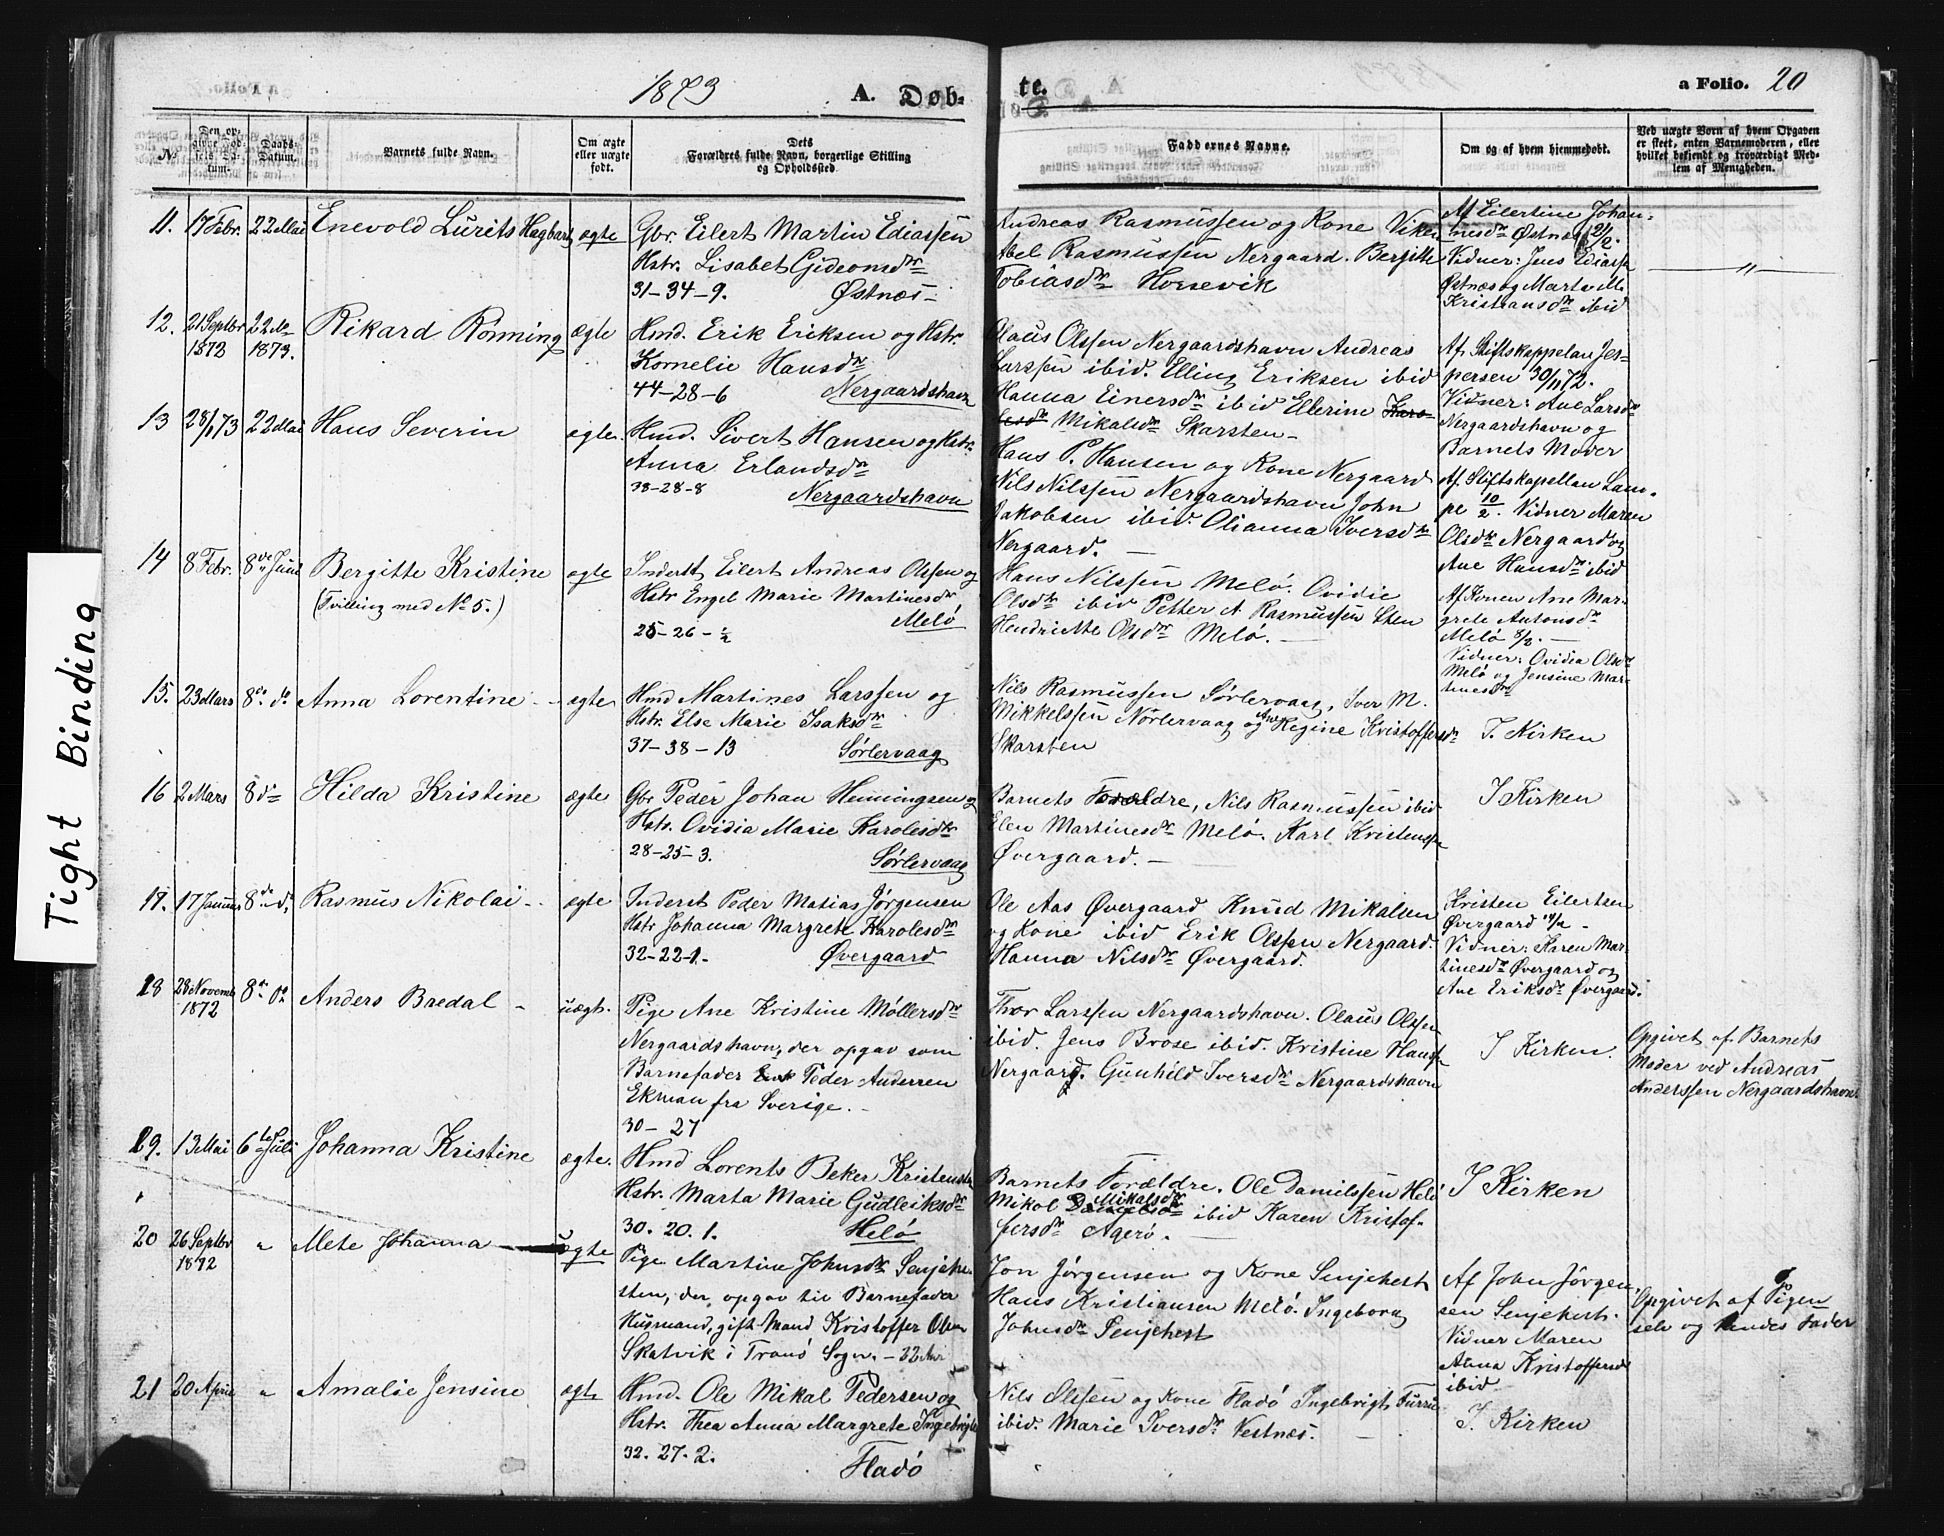 Tight Binding
1873
A. Døb-
te.
a Folio. 20
No
Den op-
givne Fød-
sels Da-
tum.
Daabs-
Datum.
Barnets fulde Navn.
Om ægte
eller uægte
født.
Dets
Forældres fulde Navn, borgerlige Stilling
og Opholdssted.
Faddernes Navne.
Om og af hvem hjemmedøbt.
Ved uægte Børn af hvem Opgaven
er skeet, enten Barnemoderen, eller
hvilket bekjendt og troværdigt Med-
lem af Menigheden.
11. 17 Febr. 22 Mai Enevold Lurits Hagbart ægte
Gbr. Eilert Martin Ediassen
Hstr. Lisabet Gideonsdtr
31-34-9. Østnæs
Andreas Rasmussen og Kone Viken
Abel Rasmussen Nergaard. Bergitte
Tobiasdtr Hossevik
Af Eilertine Johan-
nesdtr Østnæs 21/2.
Vidner: Jens Ediassn
Østnæs og Marta M.
Kristiansdtr ibid
"
12. 21 Septbr 1872 22 Mai 1873. Rikard Rönning ægte
Hmd. Erik Eriksen og Hstr.
Kornelie Hansdtr
44-28-6 Nergaardshavn
Olaus Olssen Nergaardshavn Andreas
Larssen ibid. Elling Eriksen ibid
Hanna Einersdtr ibid Ellerine Karo-
lesdtr Mikalsdtr Skarsten
Af Stiftskappelan Jes-
persen 30/11 72.
Vidner: Ane Larsdtr
Nergaardshavn og
Barnets Moder
13 28/1 73 22 Mai Hans Severin ægte.
Hmd. Sivert Hansen og Hstr.
Anna Erlandsdtr
38-28-8 Nergaardshavn
Hans P. Hansen og Kone Nergaard
Nils Nilssen Nergaardshavn John
Jakobsen ibid. Olianna Iversdtr
Nergaard.
Af Stiftskapellan Lam-
pe 10/2. Vidner Maren
Olsdtr Nergaard og
Ane Hansdtr ibid
14 8 Febr. 8de Juni Bergitte Kristine ægte
(Tvilling med No 5.)
Inderst Eilert Andreas Olssen og
Hstr Engel Marie Martinesdtr
25-26-½ Melö
Hans Nilssen Melö. Ovidie
Olsdtr ibid Petter A Rasmussen Sten
Hendriette Olsdtr Melö.
Af Konen Ane Mar-
grete Antonsdtr
Melö 8/2.
Vidner: Ovidia Olsdtr
Melö og Jensine Mar-
tinesdtr
15. 23 Mars 8de do Anna Lorentine ægte
Hmd Martines Larssen og
Hstr. Else Marie Isaksdtr
37-38-13 Sørlervaag
Nils Rasmussen Sørlervaag, Iver M.
Mikkelssen Nørlervaag og Ane Regine Kristoffersdtr
Skarsten
I. Kirken
16 2 Mars 8de Hilda Kristine ægte
Gbr Peder Johan Henningsen og
Hstr. Ovidia Marie Karolesdtr
28-25-3. Sørlervaag
Barnets Forældre, Nils Rasmussen ibid
Elen Martinesdtr Melö. Karl Kristenssn
Øvergaard.
I Kirken
17. 17 Januar 8de do Rasmus Nikolai ægte
Inderst Peder Matias Jørgensen
Hstr Johanna Margrete Karolesdtr
32-22-1. Øvergaard
Ole Aas Øvergaard Knud Mikalsen
og Kone ibid Erik Olssen Nergaard.
Hanna Nilsdtr Øvergaard.
Kristen Eilertsen
Øvergaard
Vidner: Karen Mar-
tinesdtr Øvergaard og
Ane Eriksdtr Øvergaard.
18 28 Novemb 1872 8de do Anders Bredal uægt.
Pige Ane Kristine Møllersdtr
Nergaardshavn, der opgav som
Barnefader Peder Andersen
Ekman fra Sverige.
30-27
Thor Larssen Nergaardshavn. Olaus Olssen
ibid. Jens Brose ibid. Kristine Hanssn
Nergaard. Gunhild Iversdtr Nergaardshavn
I Kirken.
Opgivet af Barnets
Moder ved Andreas
Anderssen Nergaardshavn.
19. 13 Mai 6te Juli Johanna Kristine ægte.
Hmd Lorents Beker Kristensen
Hstr. Marta Marie Gudleiksdtr
30. 20. 1. Melö
Barnets Forældre. Ole Danielssen Melö
Mikal Danielsdtr Mikalsdtr ibid Karen Kristof-
fersdtr Agerø.
I Kirken
20 26 Septbr 1872 " Mete Johanna uægte
Pige Martine Johnsdtr Senjehe-
sten, der opgav til Barnefader
Husmand, gift Mand Kristoffer Olsen
Skatvik i Tranö Sogn. - 32 Aar
Jon Jørgensen og Kone Senjehest
Hans Kristiansen Melö. Ingeborg
Johnsdtr Senjehest
Af John Jørgen-
sen Senjehest.
Vidner Maren
Anna Kristoffersdtr
ibid
Opgivet af Pigen
selv og hendes Fader
21 20 April " Amalie Jensine ægte
Hmd. Ole Mikal Pedersen og
Hstr. Thea Anna Margrete Ingebrigtsdtr
32. 27. 2. Fladö
Nils Olssen og Kone Fladö Ingebrigt Furru
ibid. Marie Iversdtr Vestnæs.
I. Kirken